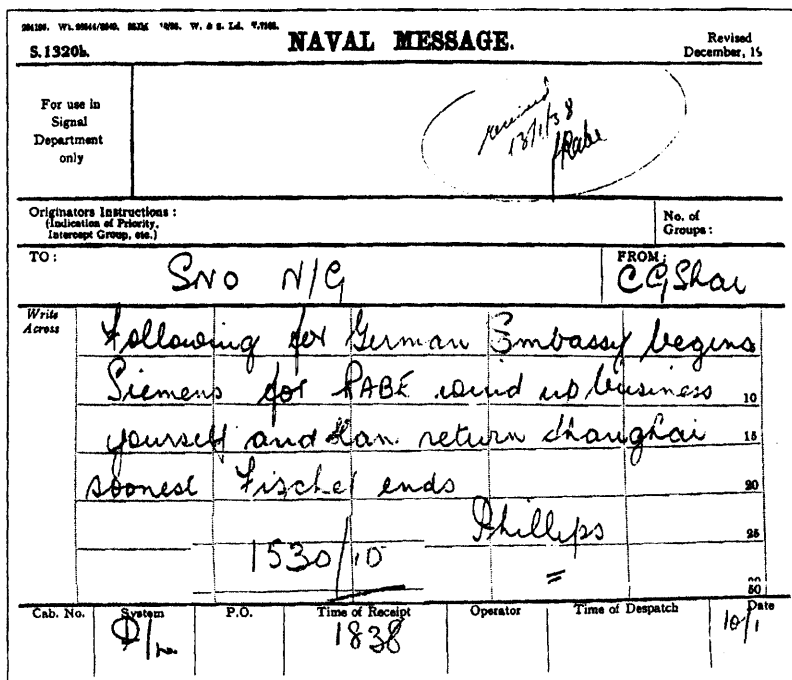 NAVAL MESSAGE.
S.1320b.
Revised
December, 15
For use in
Signal
Department
only
received
13/1/38
Rabe
Originators Instructions :
(Indication of Priority,
Intercept Group, etc.)
No. of
Groups :
TO :
SNO N/G
FROM :
CG Shai
Write
Across
Following for German Embassy begins
Siemens for RABE wind up business
10
yourself and Han return Shanghai
15
soonest Fischer ends
20
Phillips
25
1530/10
50
Cab. No.
System
P.O.
Time of Receipt
1838
Operator
Time of Despatch
Date
10/1